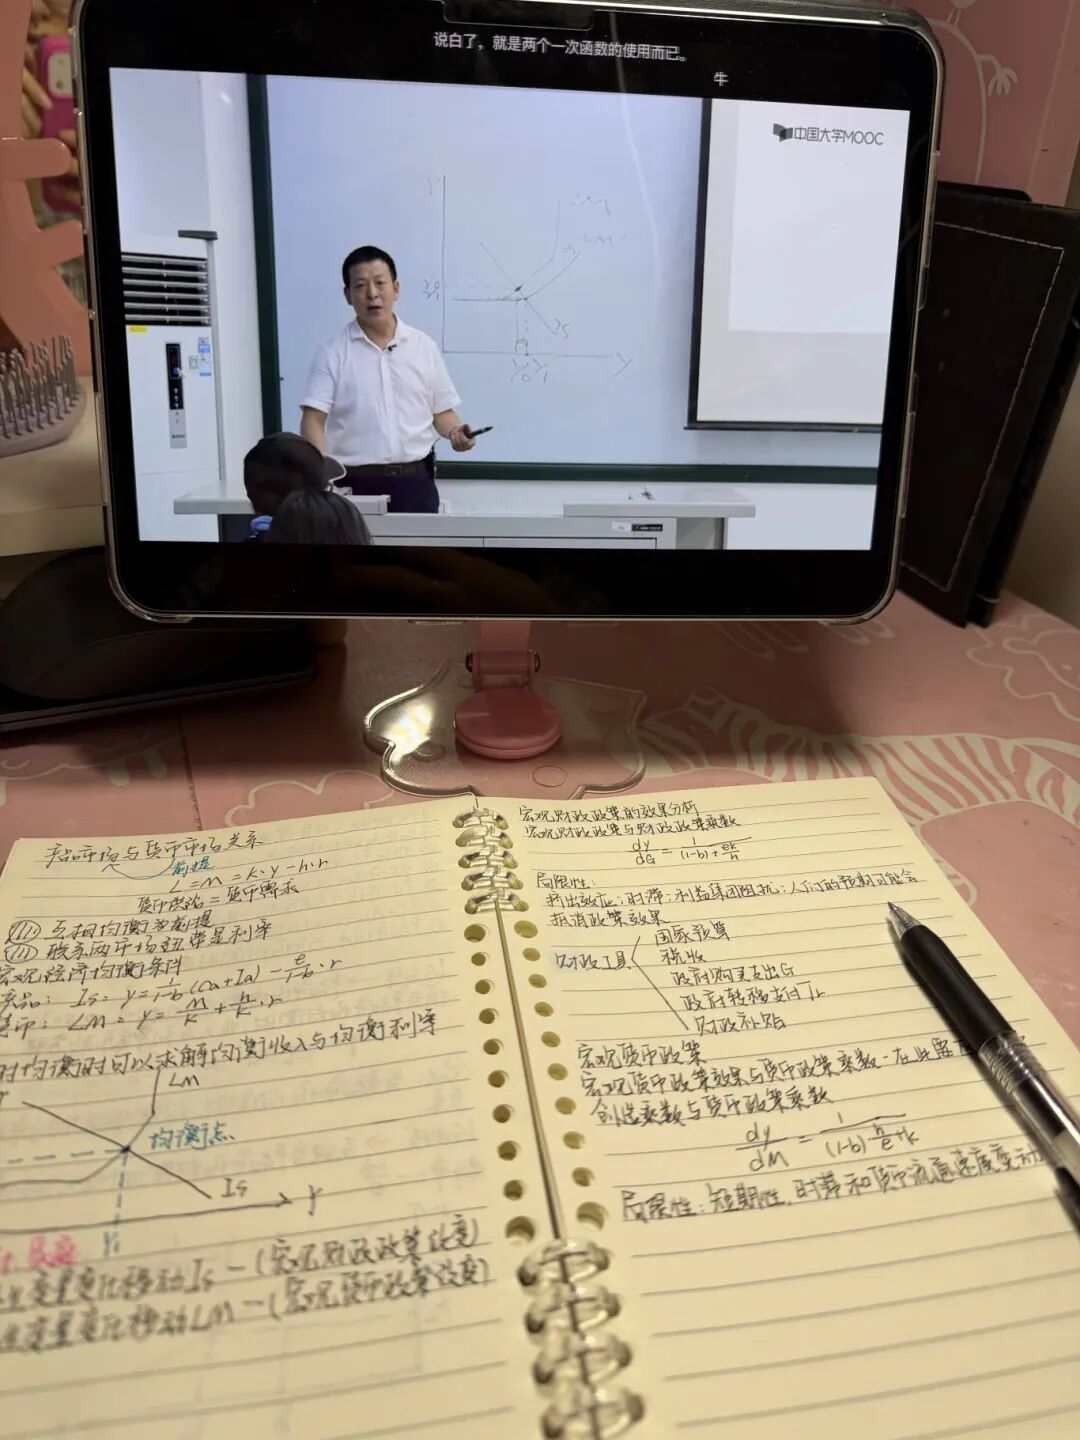 说白了，就是两个一次函数的使用而已。
牛
中国大学MOOC
LM
IS
Y
Y0 Y1
产品市场与货币市场关系
前提
L=M=k·y-h·r
货币供给=货币需求
互相均衡为前提
联系两市场纽带是利率
宏观经济均衡条件
产品: Is=y=
LM=y=M/k+h/k·r
时均衡时可以求解均衡收入与均衡利率
LM
均衡点
Is
Y
变量变化移动Is-(宏观财政政策效度)
变量变化移动LM-(宏观货币政策效度)
宏观财政政策的效果分析
宏观财政政策与财政政策乘数
dy/dG=1/((1-b)+ek/h)
局限性:
挤出效应;时滞;利益集团阻扰;人们的预期可能会
抵消政策效果
财政工具
国家预算
税收
政府购买支出G
政府转移支付Tr
财政补贴
宏观货币政策
宏观货币政策效果与货币政策乘数-在此
创造乘数与货币政策乘数
dy/dM=1/((1-b)h/e+k)
局限性:短期性,时滞和货币流通速度变动